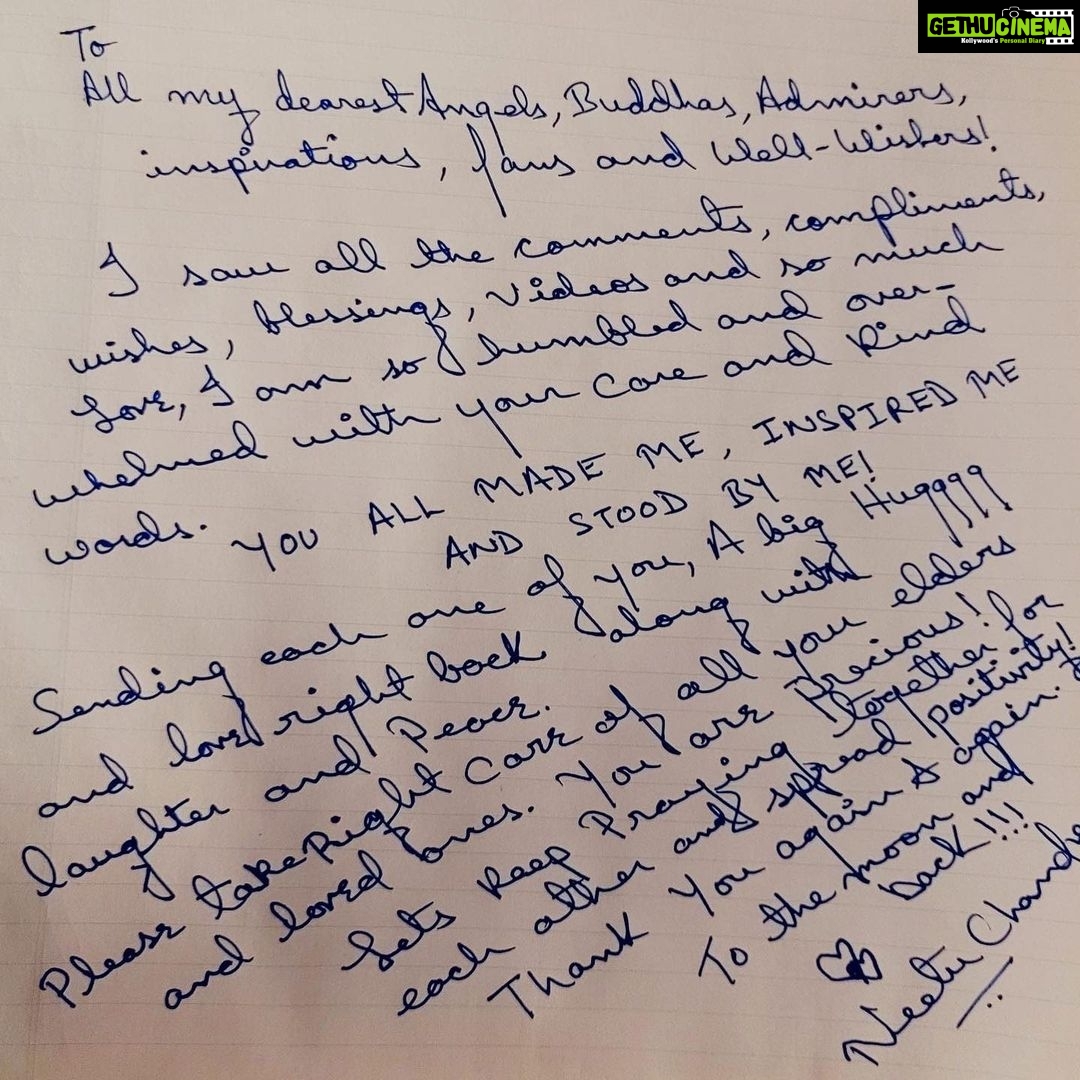 GETHUCINEMA
Kollywood's Personal Diary
To
All my dearest Angels, Buddhas, Admirers,
inspirations, fans and Well-Wishers!
I saw all the comments, compliments,
wishes, blessings, videos and so much
Love, I am so humbled and over-
whelmed with your Care and Kind
words. YOU ALL MADE ME, INSPIRED ME
AND STOOD BY ME!
Sending each one of you, A big Hugggg
and love right back along with
laughter and Peace.
Please take Right Care of all your elders
and loved ones. You are Precious!
Lets keep Praying together for
each other and spread positivity!
Thank you again & again.
To the moon and
back!!!
Neetu Chandra